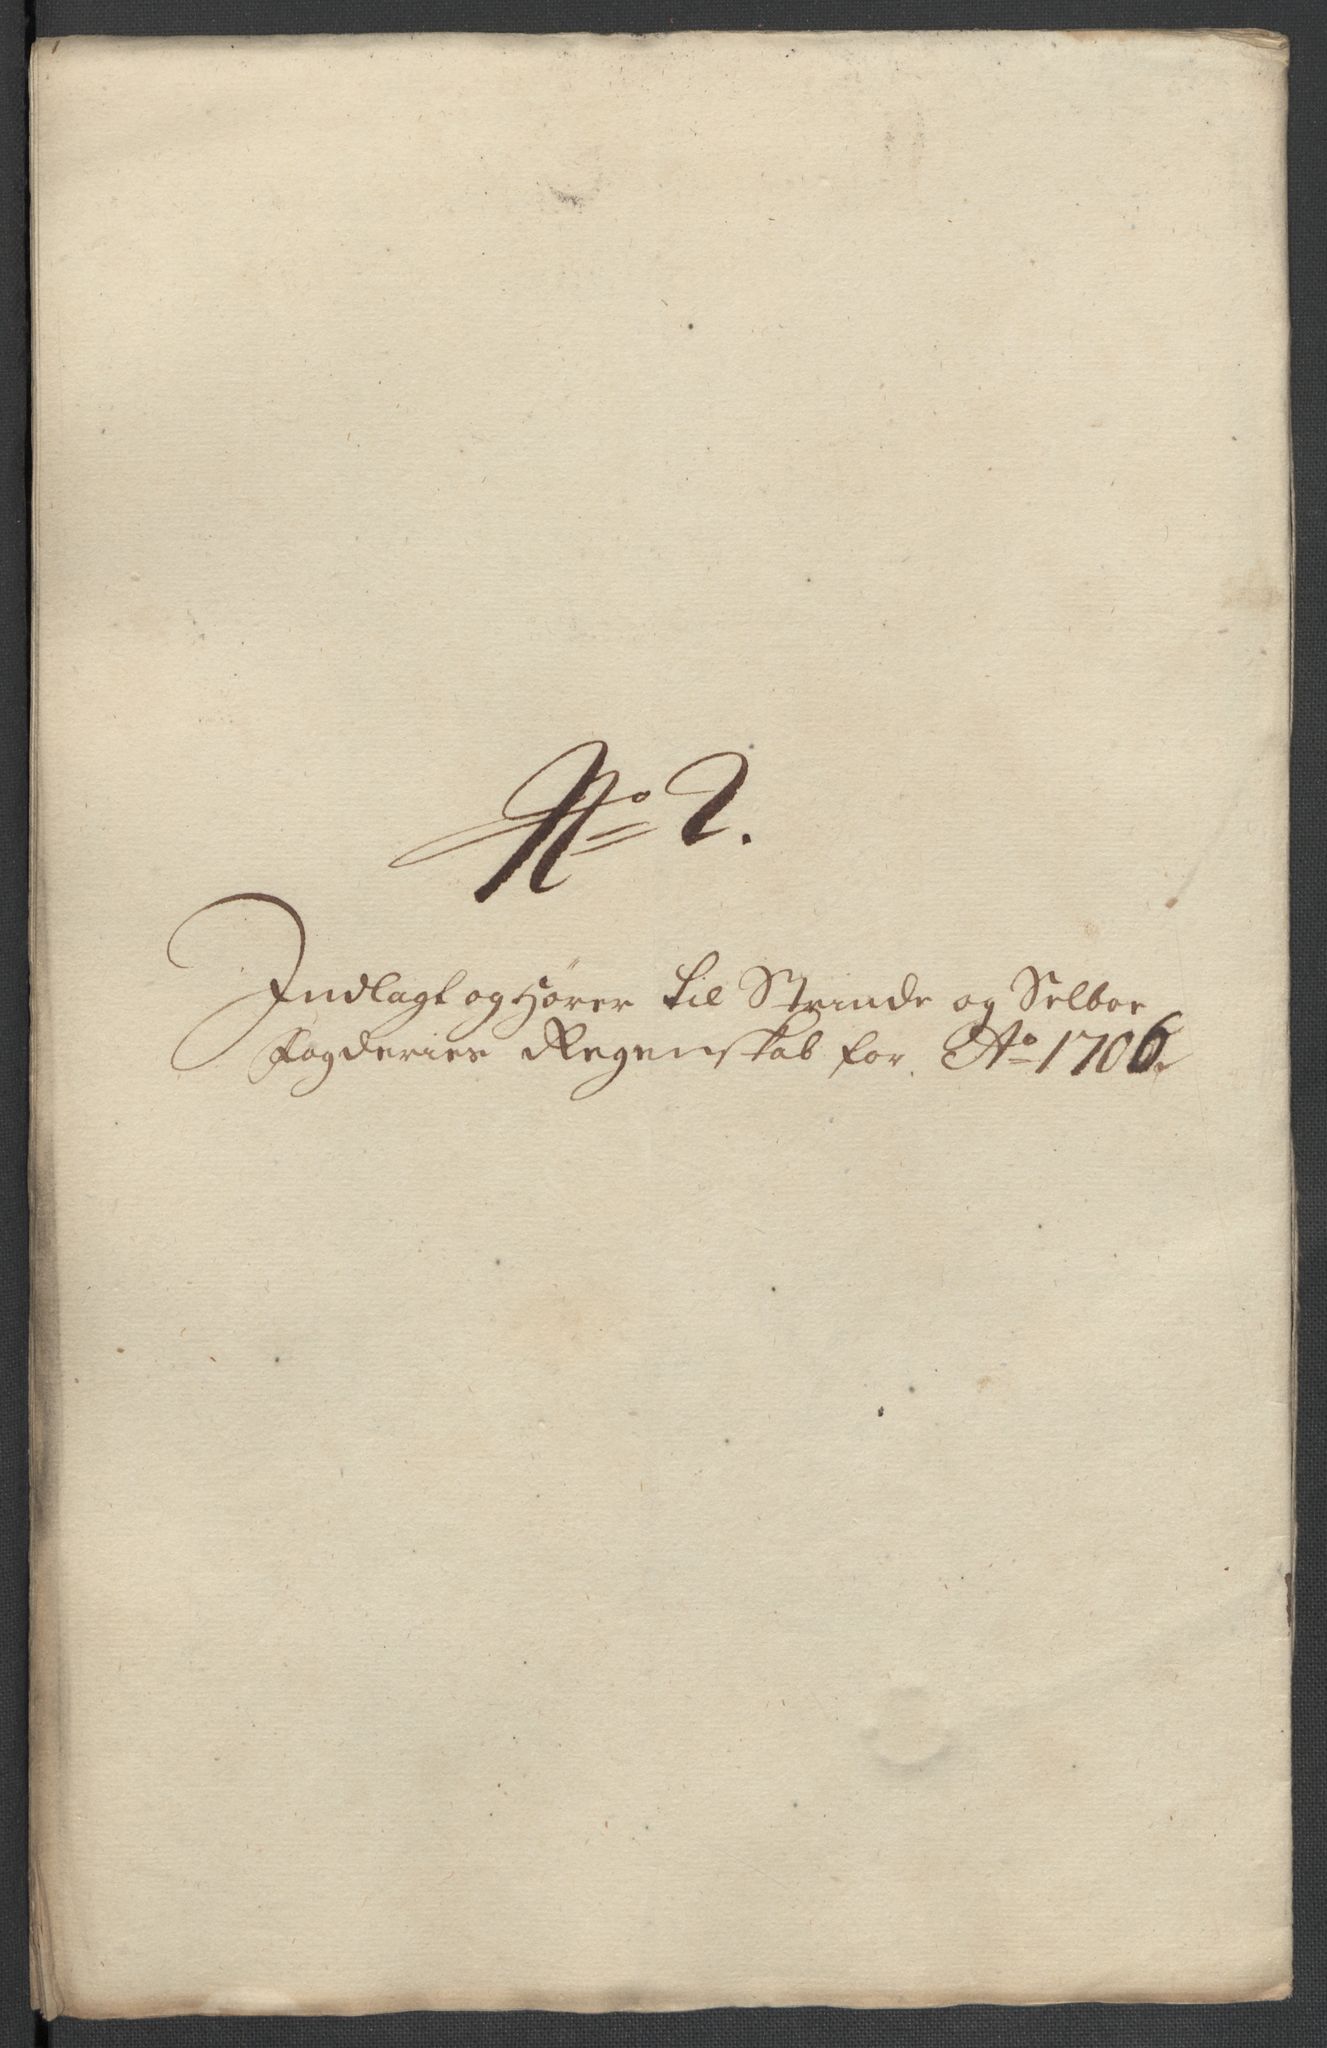 No 2.
Indlagt og hører til Strinde og Selboe
Fogderies Regenskab for Ao 1706